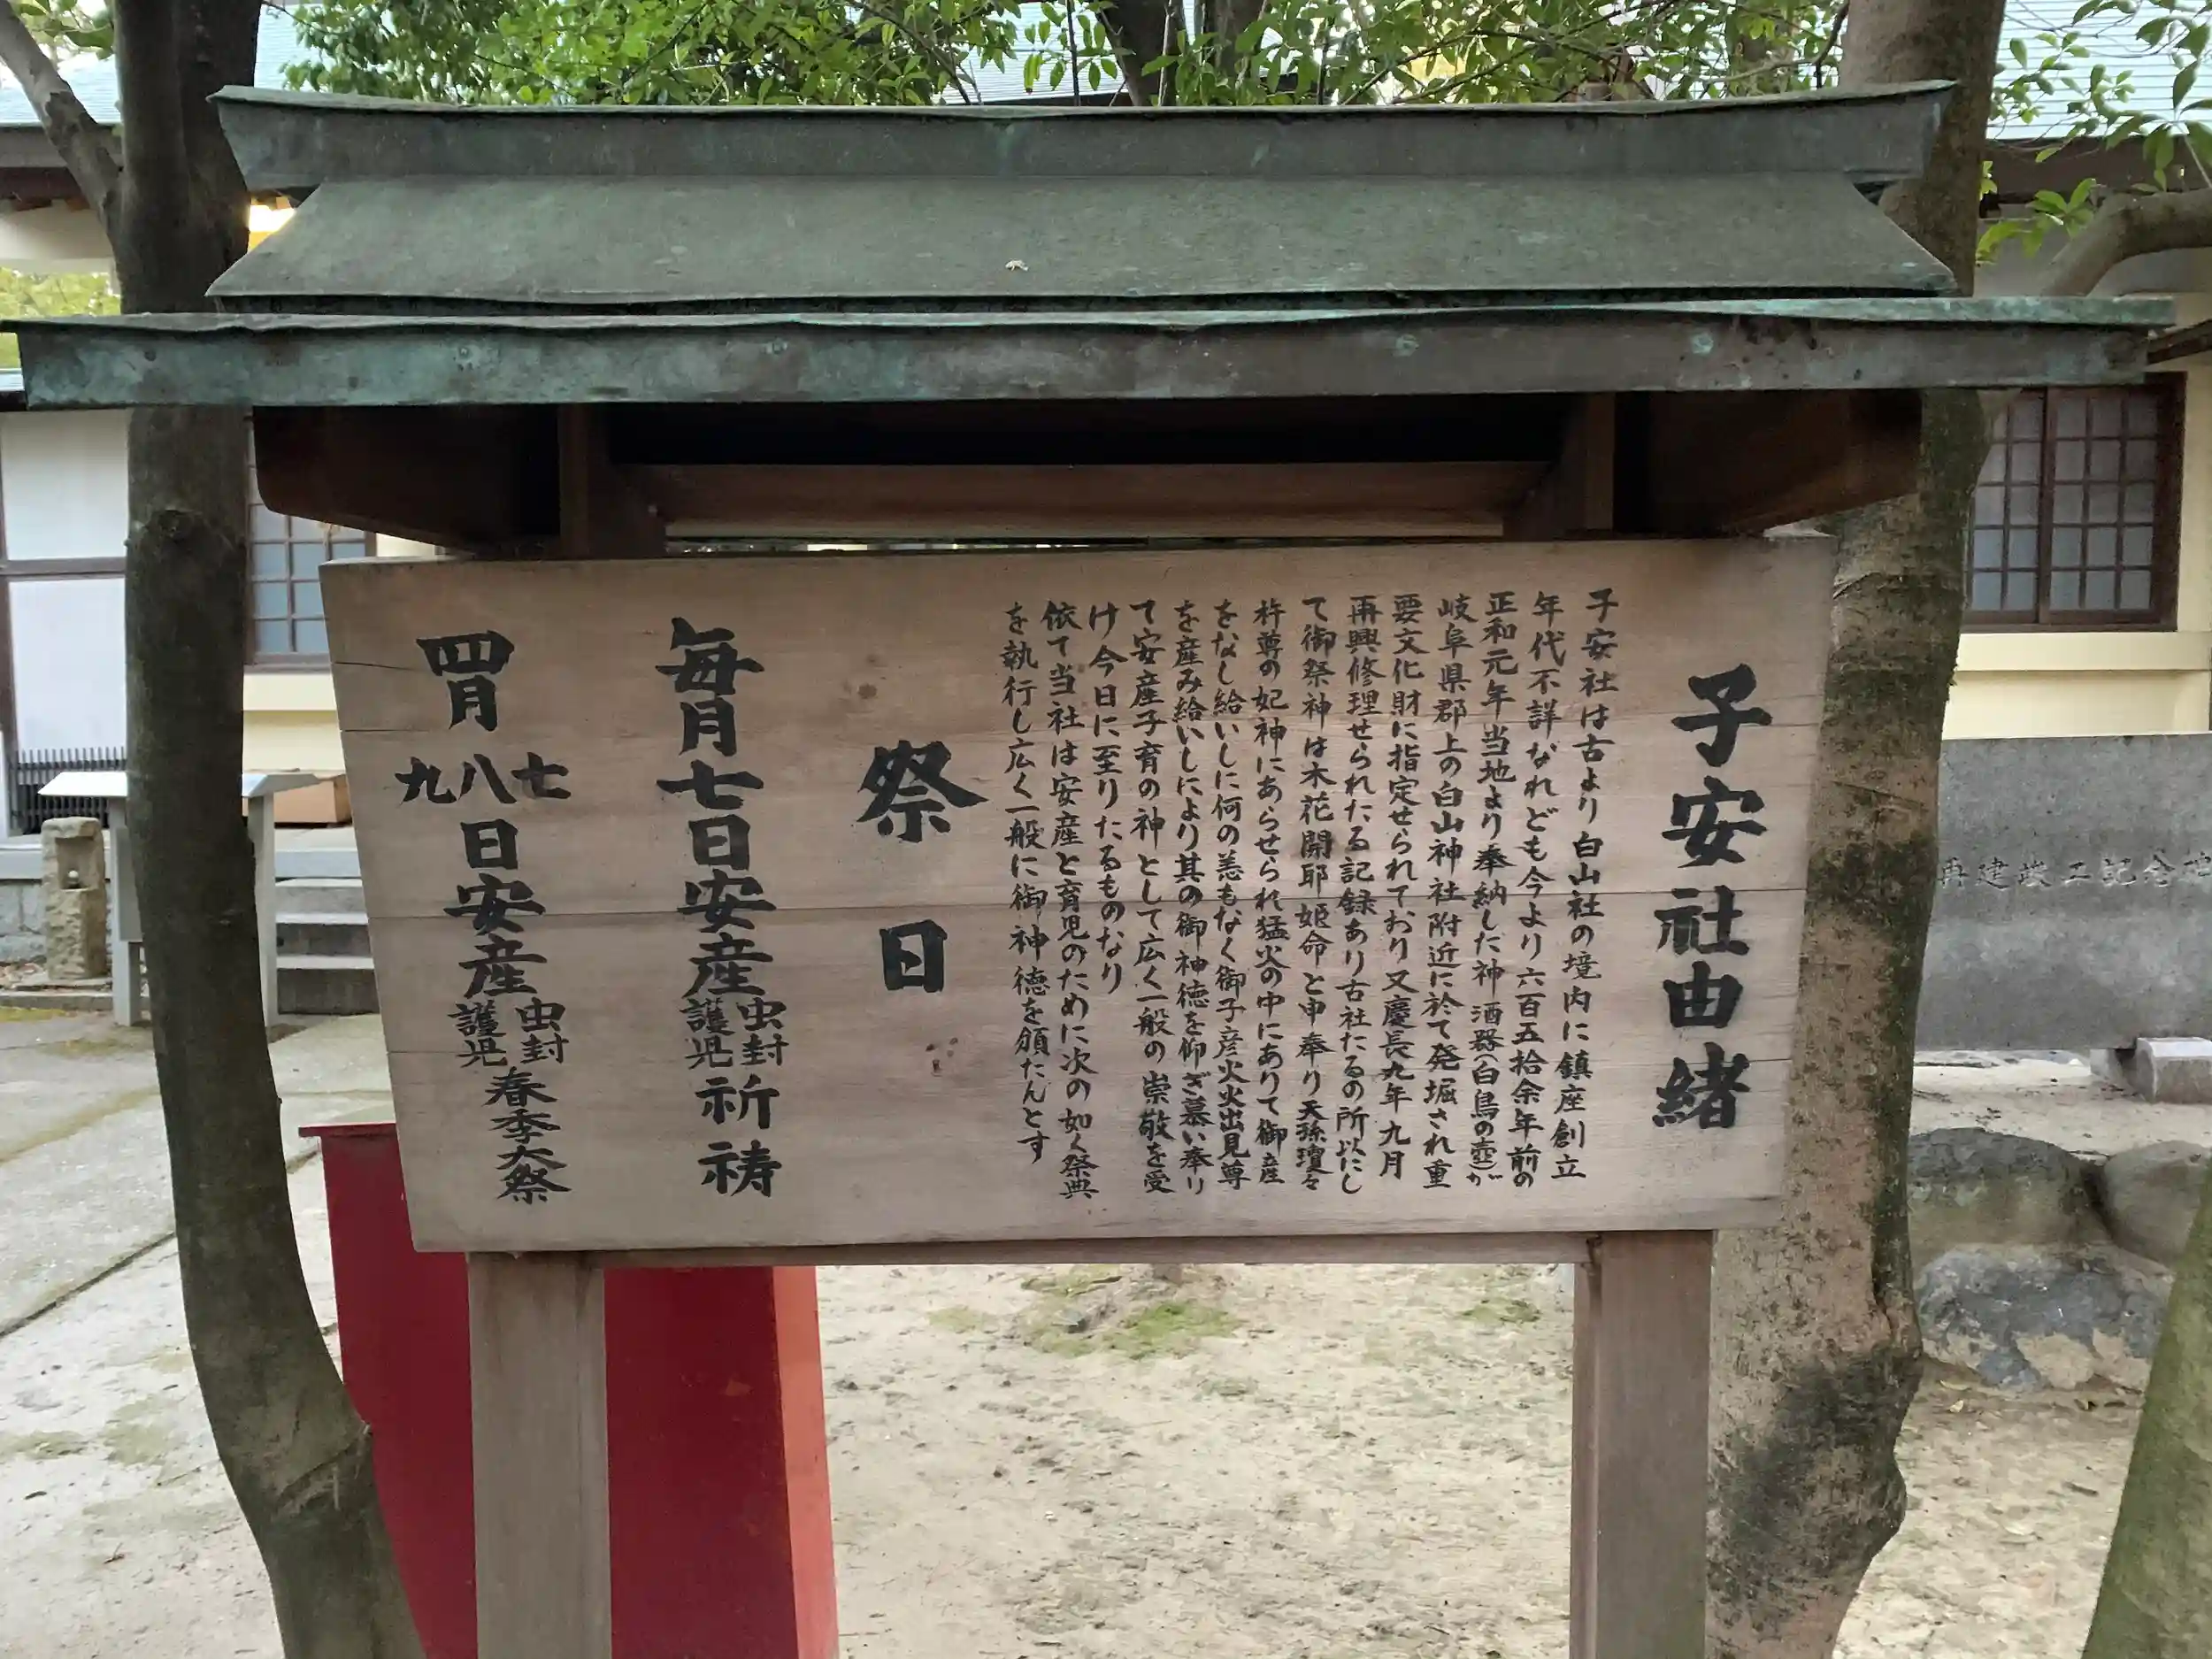 子安社由緒
子安社は古より白山社の境内に鎮座創立
年代不詳なれども今より六百五拾余年前の
正和元年当地より奉納した神酒器(白鳥の壺)が
岐阜県郡上の白山神社附近に於て発堀され重
要文化財に指定せられており又慶長九年九月
再興修理せられたる記録あり古社たるの所以にし
て御祭神は木花開耶姫命と申奉り天孫瓊々
杵尊の妃神にあらせられ猛火の中にありて御産
をなし給いしに何の恙もなく御子彦火火出見尊
を産み給いしにより其の御神徳を仰ぎ慕い奉り
て安産子育の神として広く一般の崇敬を受
け今日に至りたるものなり
依て当社は安産と育児のために次の如く祭典
を執行し広く一般に御神徳を頒たんとす
祭日
毎月七日安産虫封護児祈祷
四月七八九日安産虫封護児春季大祭
再建竣工記念碑